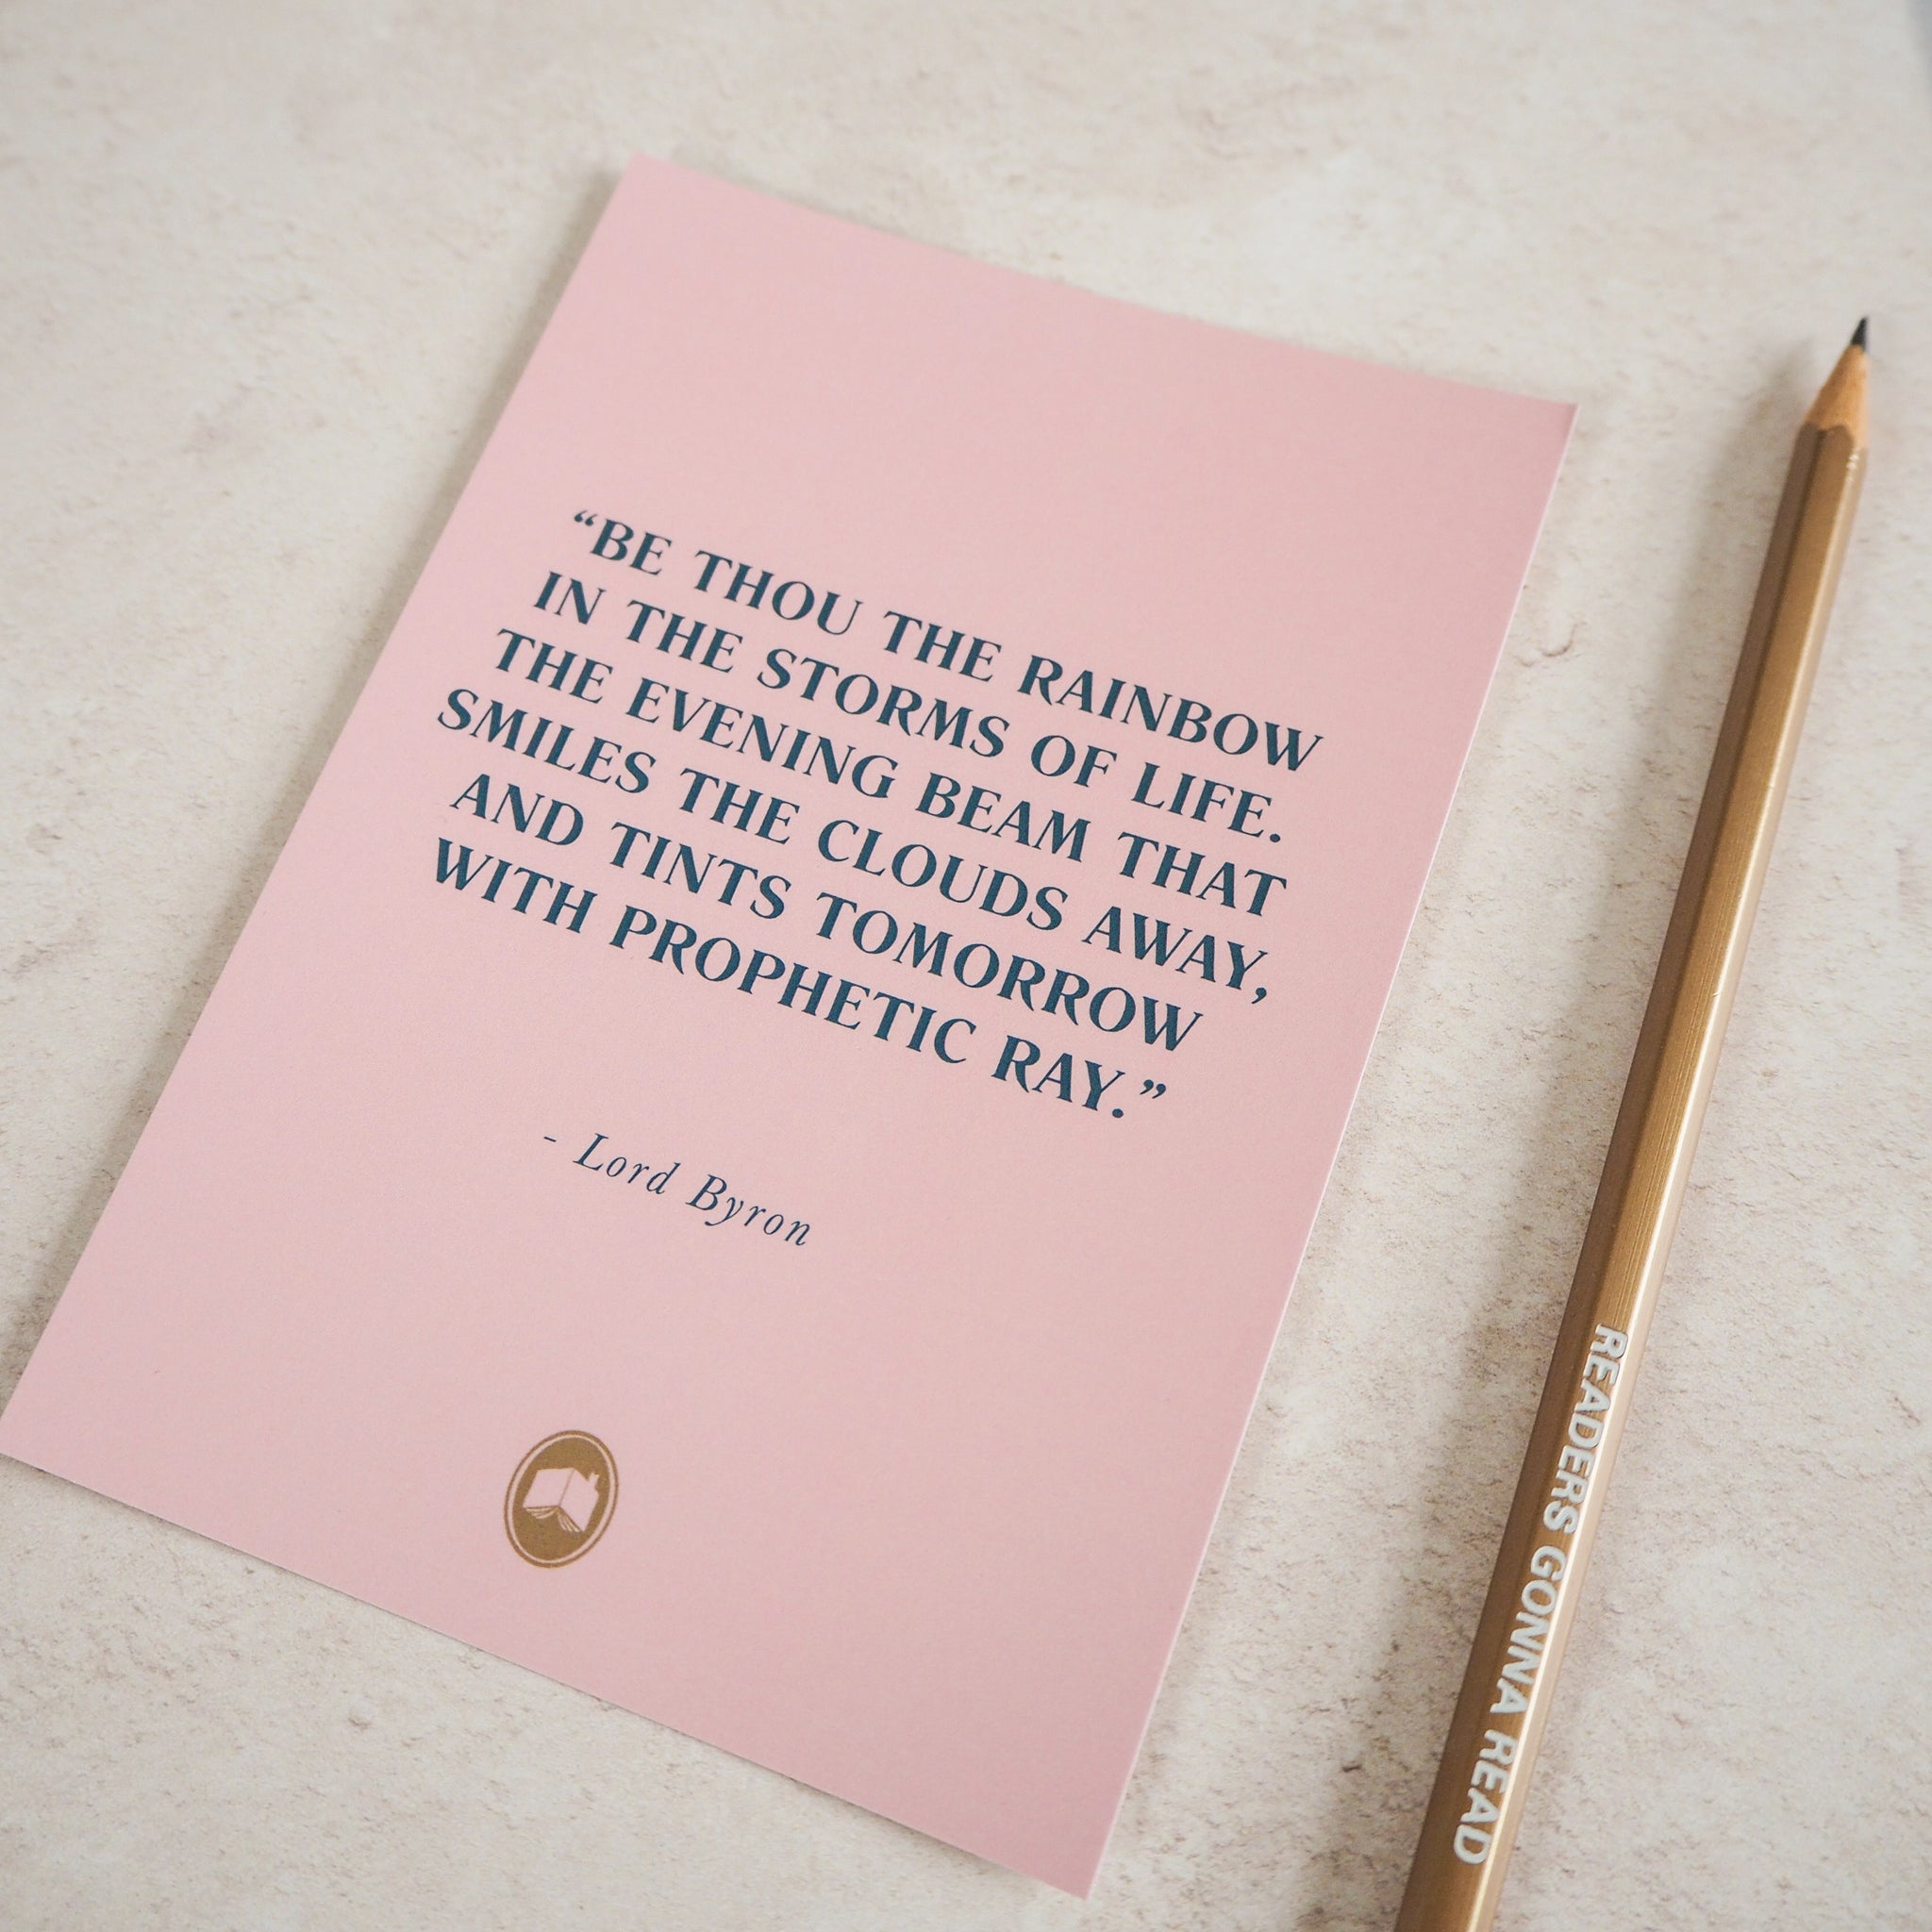 “BE THOU THE RAINBOW
IN THE STORMS OF LIFE.
THE EVENING BEAM THAT
SMILES THE CLOUDS AWAY,
AND TINTS TOMORROW
WITH PROPHETIC RAY.”
- Lord Byron
READERS GONNA READ